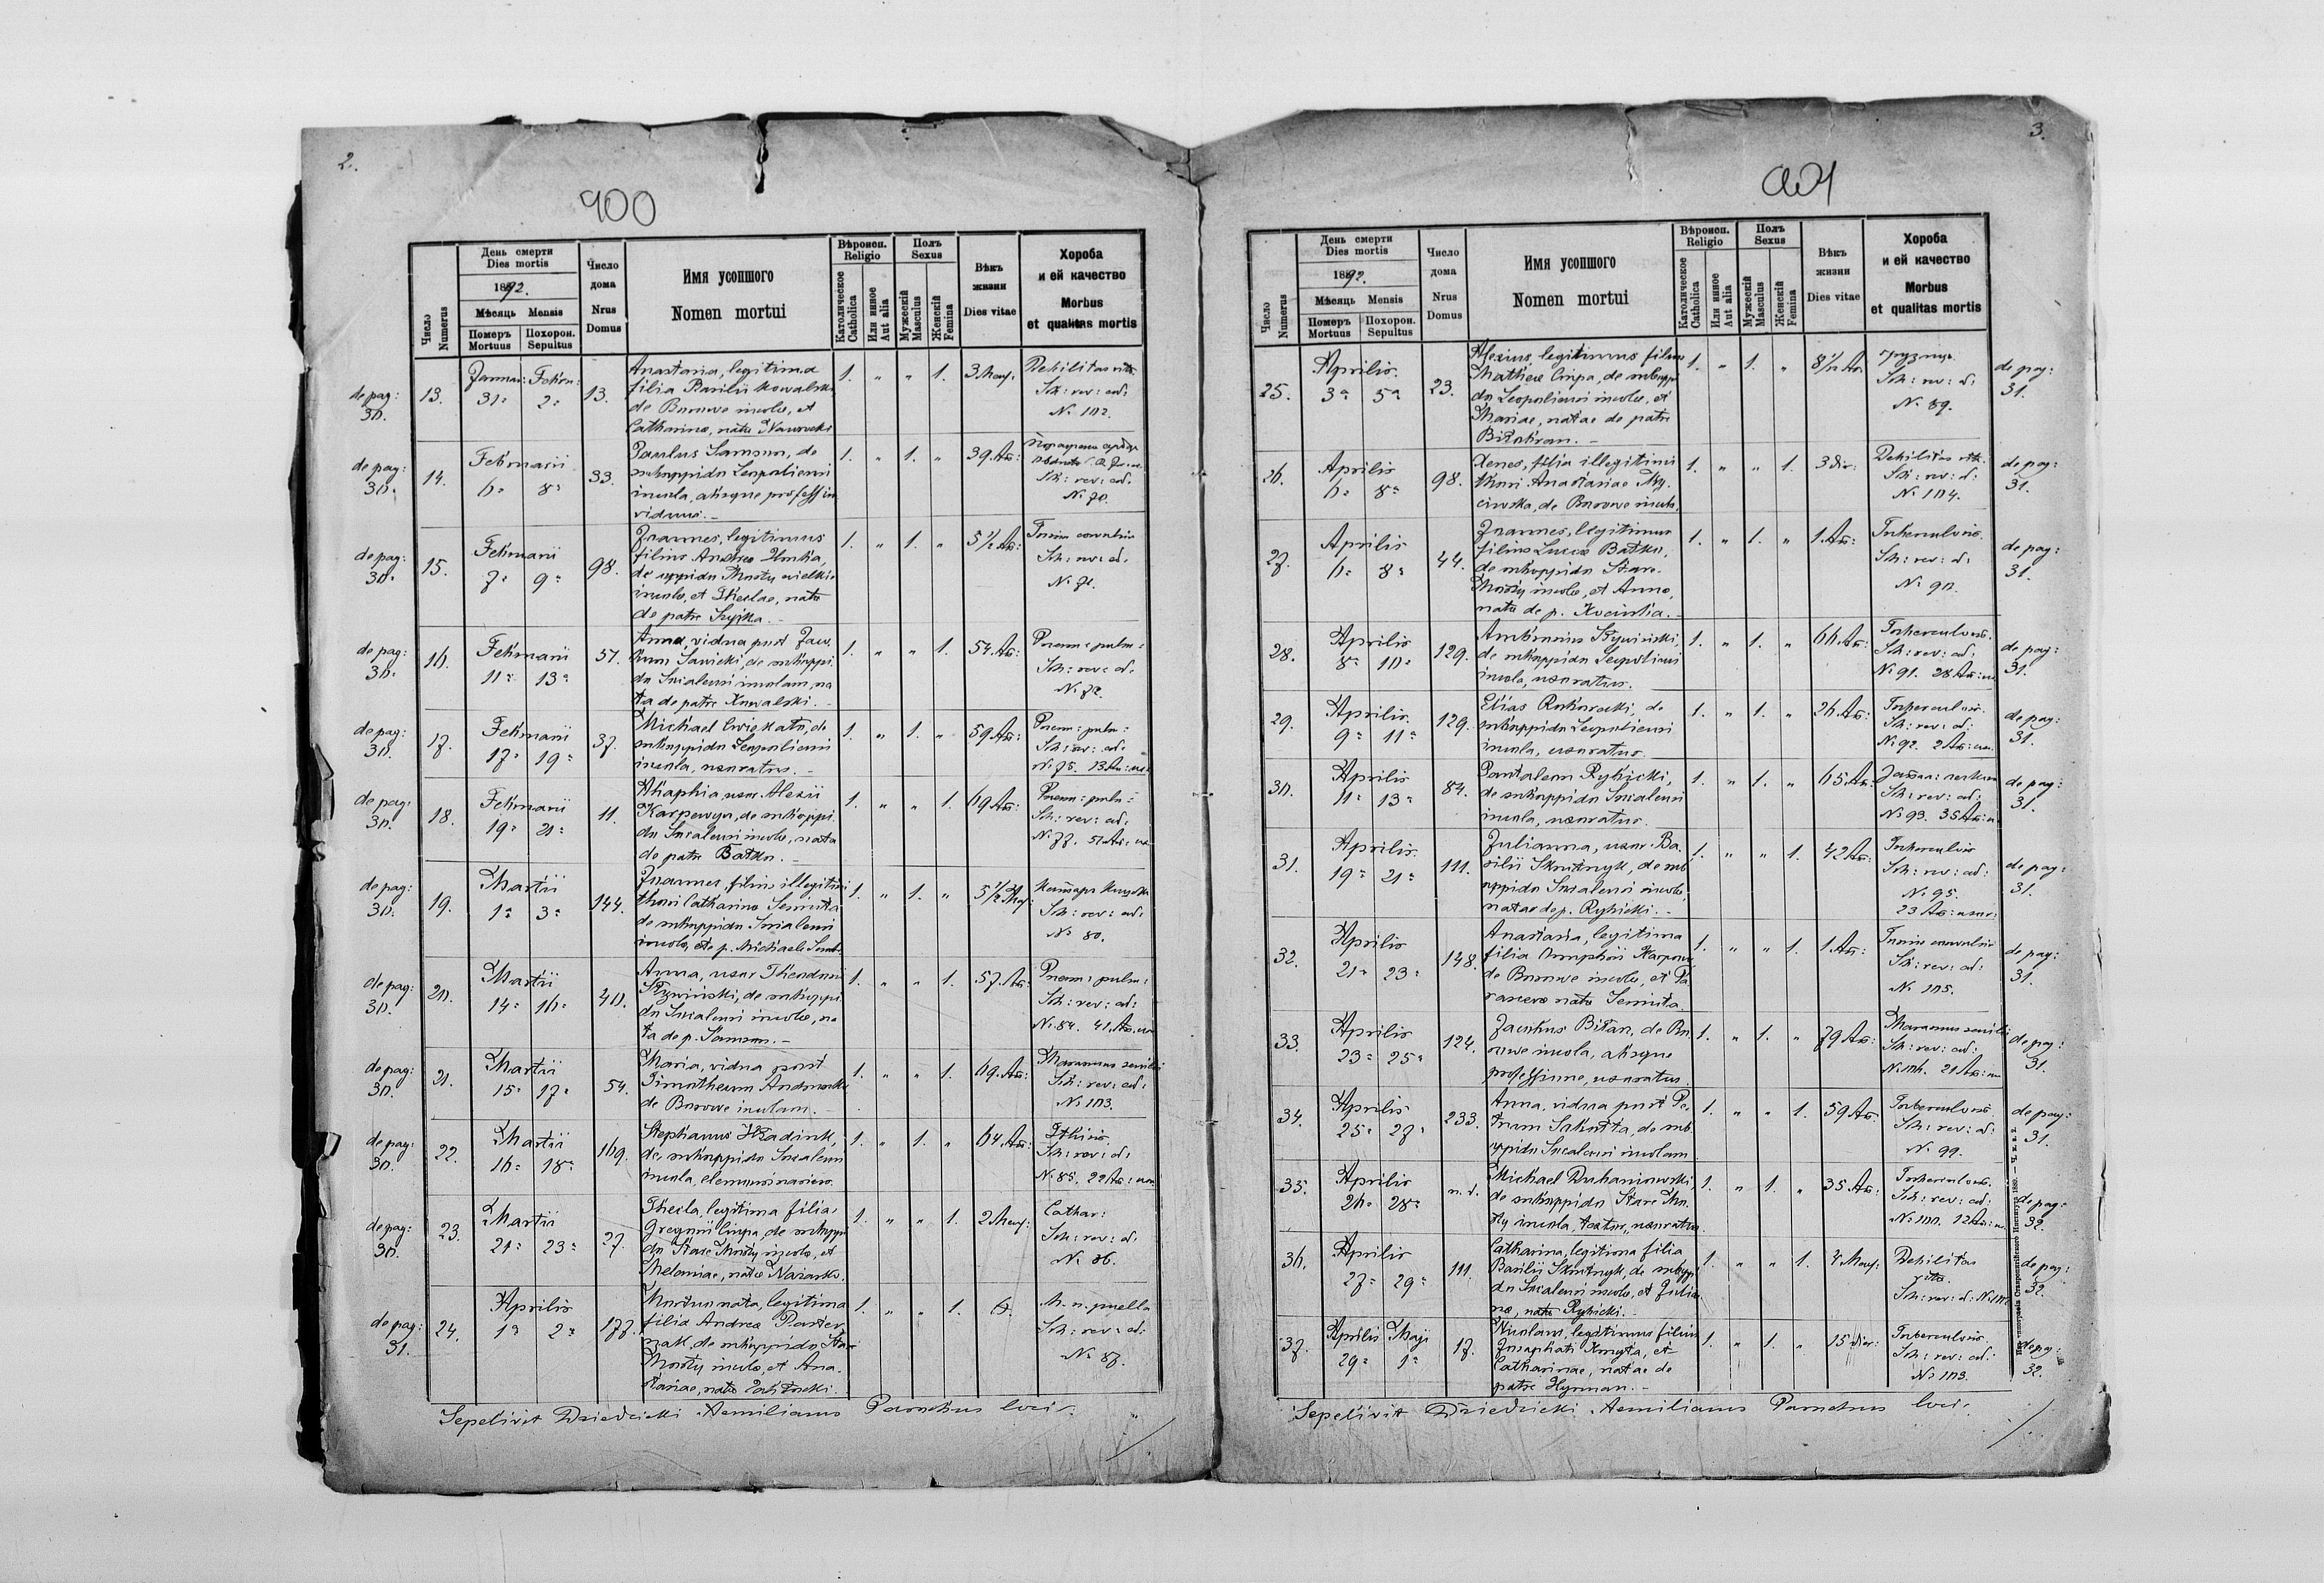 2.
400
День смерти
Dies mortis
1892.
Мѣсяць Mensis
Померъ Похорон.
Mortuus Sepultus
Число
Numerus
Число
дома
Nrus
Domus
Имя усопшого
Nomen mortui
Вѣроисп.
Religio
Католическое
Catholica
Или инное
Aut alia
Полъ
Sexus
Мужескій
Masculus
Женскій
Femina
Вѣкъ
жизни
Dies vitae
Хороба
и ей качество
Morbus
et qualitas mortis
de pag: 30. 13. Januar: Febru: 31a 2a 13.
Anastasia, legitima
filia Basilii Kowalski
de Burowe incolae, et
Catharinae, natae Nawrocki
1. " " 1. 3 Mens:
Debilitas vitae
Sch: rev: ad:
№ 102.
de pag: 30. 14. Februarii 6a 8a 33.
Paulus Samson, de
suboppido Leopoliensi
incola, absque professione
viduus. –
1. " 1. " 39 An:
Sch: rev: ad:
№ 70.
de pag: 30. 15. Februarii 7a 9a 98.
Joannes, legitimus
filius Andreae
de oppido Mosty wielkie
incolae, et Theclae, natae
de patre
1. " 1. " 5½ An:
Tussis convulsiv
Sch: rev: ad:
№ 71.
de pag: 30. 16. Februarii 11a 13a 57.
Anna, vidua post Jaco
bum Sawicki, de suboppi
do Socalensi incolam, na
ta de patre Kowalski. –
1. " " 1. 54 An:
Pneum: pulm:
Sch: rev: ad:
№ 72.
de pag: 30. 17. Februarii 17a 19a 37.
Michael
suboppido Leopoliensi
incola, uxoratus. –
1. " 1. " 59 An:
Pneum: pulm:
Sch: rev: ad:
№ 75. 13 An: ux:
de pag: 30. 18. Februarii 19a 21a 11.
Agaphia uxor Alexii
Karpowyn, de suboppi
do Socalensi incolae, nata
de patre Batko. –
1. " " 1. 69 An:
Pneum: pulm:
Sch: rev: ad:
№ 77. 51 An: ux
de pag: 30. 19. Martii 1a 3a 144.
Joannes, filius illegitimi
thori Catharinae Semuta
de suboppido Socalensi
incolae, et p. Michaele
1. " 1. " 5½ Mens:
Sch: rev: ad:
№ 80.
de pag: 30. 20. Martii 14a 16a 40.
Anna, uxor Theodori
Krzywiński, de suboppi
do Socalensi incolae, na
ta de p. Samson. –
1. " " 1. 57 An:
Pneum: pulm:
Sch: rev: ad:
№ 84. 41 An: ux
de pag: 30. 21. Martii 15a 17a 54.
Maria, vidua post
Timotheum
de Burowe incolam. –
1. " " 1. 69 An:
Marasmus senilis
Sch: rev: ad:
№ 103.
de pag: 30. 22. Martii 16a 18a 169.
Stephanus Hladiuk,
de suboppido Socalensi
incola, elemosinarius.
1. " 1. " 64 An:
Phtisis.
Sch: rev: ad:
№ 85. 22 An: ux
de pag: 30. 23. Martii 21a 23a 27.
Thecla, legitima filia
Gregorii Cinpa, de suboppi
do Stare Mosty incolae, et
Melaniae, natae
1. " " 1. 2 Mens:
Cathar:
Sch: rev: ad:
№ 86.
de pag: 31. 24. Aprilis 1a 2a 177.
Mortuo nata, legitima
filia Andreae Paster
nak, de suboppido Stare
Mosty incolae, et Ana
stasiae, natae
1. " " 1. 0.
M. n. puella
Sch: rev: ad:
№ 87.
Sepelivit Dziedzicki Aemilianus Parochus loci.
3.
401
Число
Numerus
День смерти
Dies mortis
1892.
Мѣсяць Mensis
Померъ Похорон.
Mortuus Sepultus
Число
дома
Nrus
Domus
Имя усопшого
Nomen mortui
Вѣроисп.
Religio
Католическое
Catholica
Или инное
Aut alia
Полъ
Sexus
Мужескій
Masculus
Женскій
Femina
Вѣкъ
жизни
Dies vitae
Хороба
и ей качество
Morbus
et qualitas mortis
25. Aprilis 3a 5a 23.
Alexius, legitimus filius
Mathiae Cinpa, de suboppi
do Leopoliensi incolae, et
Mariae, natae de patre
1. " 1. "
Sch: rev: ad:
№ 89.
de pag: 31.
26. Aprilis 6a 8a 98.
Xenes, filia illegitimi
thori Anastasiae
de Burowe incolae.
1. " " 1. 3 dier:
Debilitas vitae
Sch: rev: ad:
№ 104.
de pag: 31.
27. Aprilis 6a 8a 44.
Joannes, legitimus
filius Lucae Batko,
de suboppido Stare
Mosty incolae, et Annae,
natae de p.
1. " 1. " 1 An:
Tuberculosis.
Sch: rev: ad:
№ 90.
de pag: 31.
28. Aprilis 8a 10a 129.
Ambrosius Krzywiński,
de suboppido Leopoliensi
incola, uxoratus.
1. " 1. " 66 An:
Tuberculosis.
Sch: rev: ad:
№ 91. 28 An: ux
de pag: 31.
29. Aprilis 9a 11a 129.
Elias, de
suboppido Leopoliensi
incola, uxoratus.
1. " 1. " 26 An:
Tuberculosis.
Sch: rev: ad:
№ 92. 2 An: ux
de pag: 31.
30. Aprilis 11a 13a 84.
Pantalem Rybicki,
de suboppido Socalensi
incola, uxoratus.
1. " 1. " 65 An:
Sch: rev: ad:
№ 93. 35 An: ux
de pag: 31.
31. Aprilis 19a 21a 111.
Julianna, uxor Ba
silii Skrutnyk, de sub
oppido Socalensi incolae,
natae de p. Rybicki. –
1. " " 1. 42 An:
Tuberculosis
Sch: rev: ad:
№ 95.
23 An: uxor:
de pag: 31.
32. Aprilis 21a 23a 148.
Anastasia, legitima
filia Onuphrii
de Burowe incolae, et Pa
rascevae natae Semuta.
1. " " 1. 1 An:
Tussis convulsiv
Sch: rev: ad:
№ 105.
de pag: 31.
33. Aprilis 23a 25a 124.
Jacobus Bilan, de Bu
rowe incola, absque
professione, uxoratus.
1. " 1. " 79 An:
Marasmus senilis
Sch: rev: ad:
№ 106. 21 An: ux
de pag: 31.
34. Aprilis 25a 27a 233.
Anna, vidua post Pe
trum, de sub
oppido Socalensi incolam
1. " " 1. 59 An:
Tuberculosis.
Sch: rev: ad:
№ 99.
de pag: 31.
35. Aprilis 26a 28a n. d.
Michael Duhaniowski,
de suboppido Stare Mo
sty incola, uxoratus
1. " 1. " 35 An:
Tuberculosis.
Sch: rev: ad:
№ 100. 12 An: ux
de pag: 32.
36. Aprilis 27a 29a 111.
Catharina, legitima filia
Basilii Skrutnyk, de suboppi
do Socalensi incolae, et Julian
nae, natae Rybicki. –
1. " " 1. Mens:
Debilitas
vitae.
Sch: rev: ad:
de pag: 32.
37. Aprilis Maji 29a 1a 17.
Nicolaus, legitimus filius
Josaphati Kmyta, et
Catharinae, natae de
patre Hyrman. –
1. " 1. " 15 dier:
Tuberculosis.
Sch: rev: ad:
№ 103.
de pag: 32.
Sepelivit Dziedzicki Aemilianus Parochus loci.